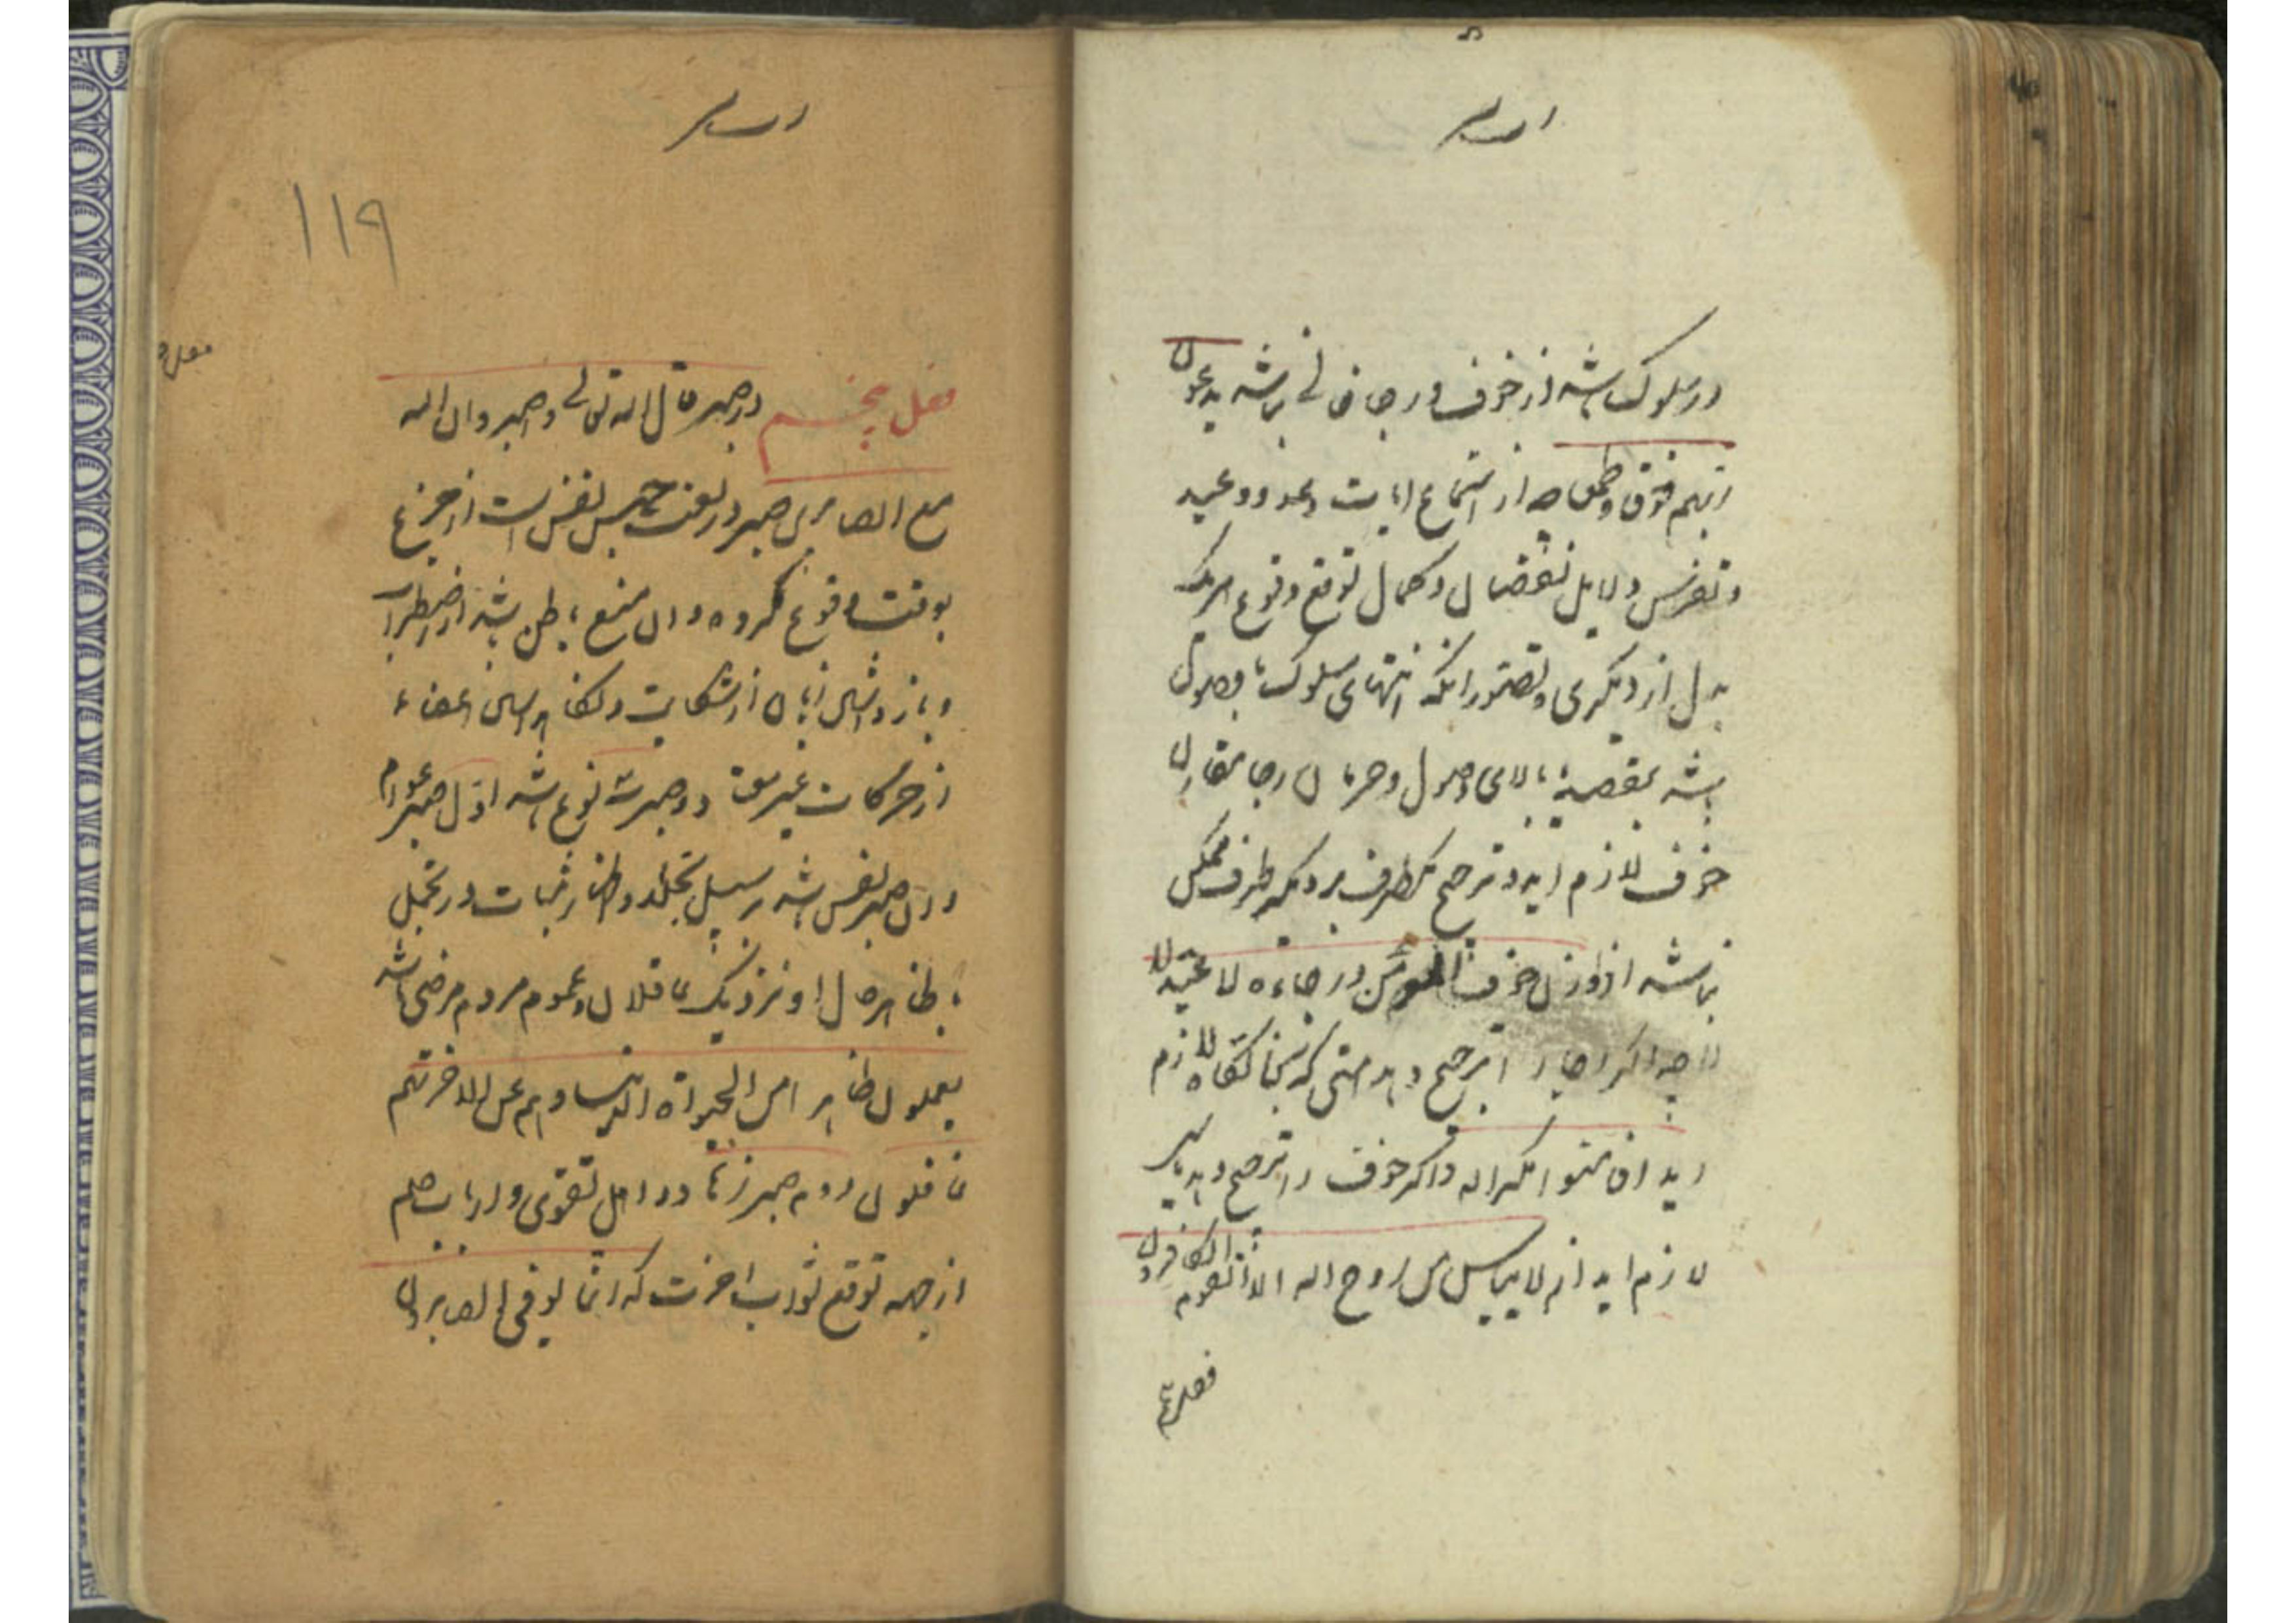 در سلوک باشد از خوف و رجا خالی نباشد یدعون
ربهم خوفا وطمعا چه از استماع ایات وعد و وعید
و تفرس دلایل نقصان و کمال توقع وقوع هر یک
بدل از دیگری و تصور انکه انتهای سلوک با وصول
باشد بمقصد یا لای وصول و حرمان رجا مقارن
خوف لازم اید و ترجیح یکطرف بر دیگر طرف ممکن
نباشد اذ لو وزن خوف المؤمن ورجاءه لاعتدلا
چه اگر رجا را ترجیح دهد امنی که نه بجایگاه لازم
اید افامنوا مکر الله و اگر خوف را ترجیح دهد یاس
لازم اید انه لا ییاس من روح الله الا القوم الکافرون
فصل
۱۱۹
فصل پنجم در صبر قال الله تعالی واصبروا ان الله
مع الصابرین صبر در لغت حبس نفس است از جزع
بوقت وقوع مکروه و ان منع باطن باشد از اضطراب
و باز داشتن زبان از شکایت و نگاه داشتن اعضاء
از حرکات غیر معتاد و صبر سه نوع باشد اول صبر عوام
و ان صبر نفس باشد بر سبیل تجلد و اظهار ثبات در تحمل
تا ظاهر حال او نزدیک عاقلان و عموم مردم مرضی باشد
یعلمون ظاهرا من الحیواة الدنیا وهم عن الاخرة هم
غافلون دوم صبر زهاد و اهل تقوی و ارباب حلم
از جهه توقع ثواب اخرت که انما یوفی الصابرون